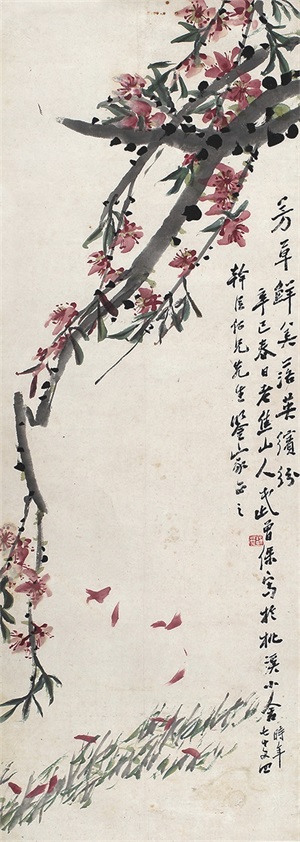 芳草鲜美落英缤纷
辛巳春日老焦山人武曾保写於桃溪小舍時年七十又四
幹臣仁兄先生鉴家正之